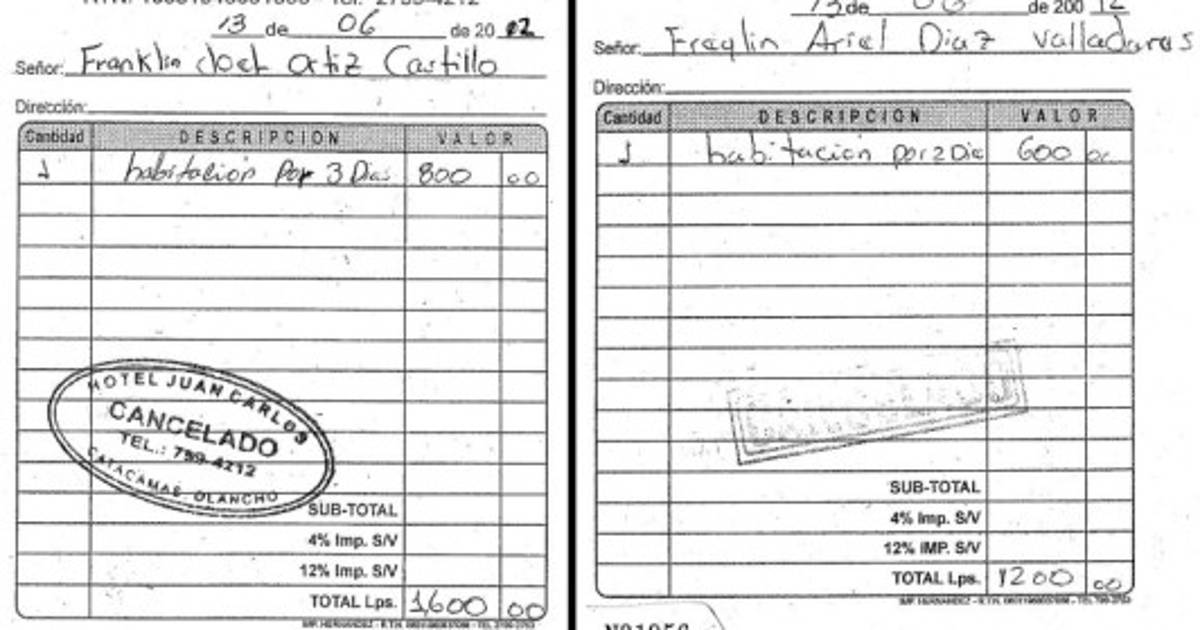 13 de 06 de 20 12
Señor: Franklin Joel Ortiz Castillo
Dirección:
Cantidad DESCRIPCION VALOR
1 habitación por 3 Dias 800 00
HOTEL JUAN CARLOS
CANCELADO
TEL.: 799-4212
CATACAMAS, OLANCHO
SUB-TOTAL
4% Imp. S/V
12% Imp. S/V
TOTAL Lps. 1,600 00
13 de 06 de 200 12
Señor: Fraqlin Ariel Diaz Valladares
Dirección:
Cantidad DESCRIPCION VALOR
1 habitacion por 2 Dia 600 00
SUB-TOTAL
4% Imp. S/V
12% IMP. S/V
TOTAL Lps. 1200 00